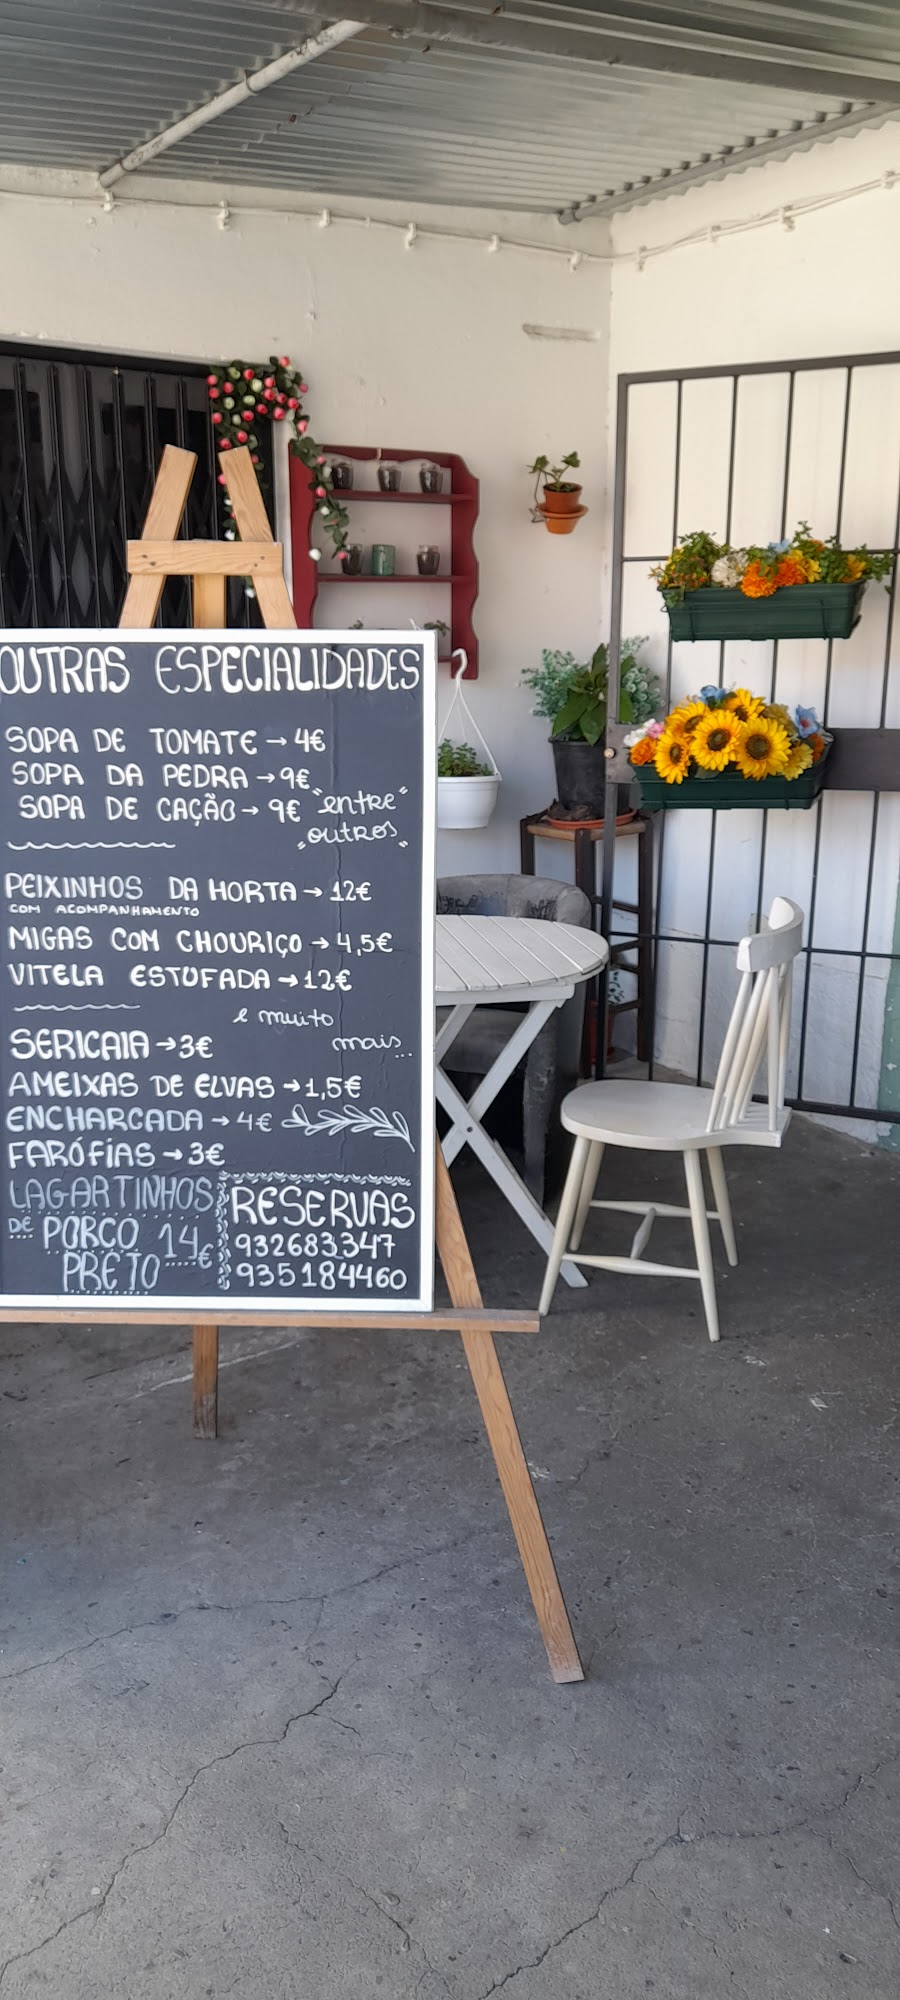 OUTRAS ESPECIALIDADES
SOPA DE TOMATE → 4€
SOPA DA PEDRA → 9€
SOPA DE CAÇÃO → 9€ "entre"
"outros"
PEIXINHOS DA HORTA → 12€
COM ACOMPANHAMENTO
MIGAS COM CHOURIÇO → 4,5€
VITELA ESTUFADA → 12€
e muito
mais...
SERICAIA → 3€
AMEIXAS DE ELVAS → 1,5€
ENCHARCADA → 4€
FARÓFIAS → 3€
LAGARTINHOS
DE PORCO 14€
PRETO
RESERVAS
932683347
935184460